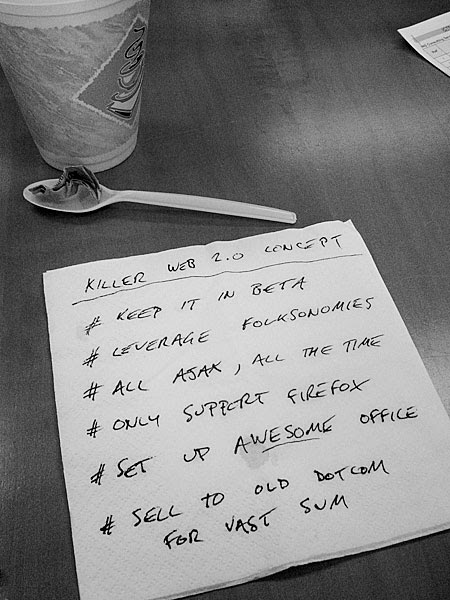 KILLER WEB 2.0 CONCEPT
# KEEP IT IN BETA
# LEVERAGE FOLKSONOMIES
# ALL AJAX, ALL THE TIME
# ONLY SUPPORT FIREFOX
# SET UP AWESOME OFFICE
# SELL TO OLD DOTCOM
FOR VAST SUM